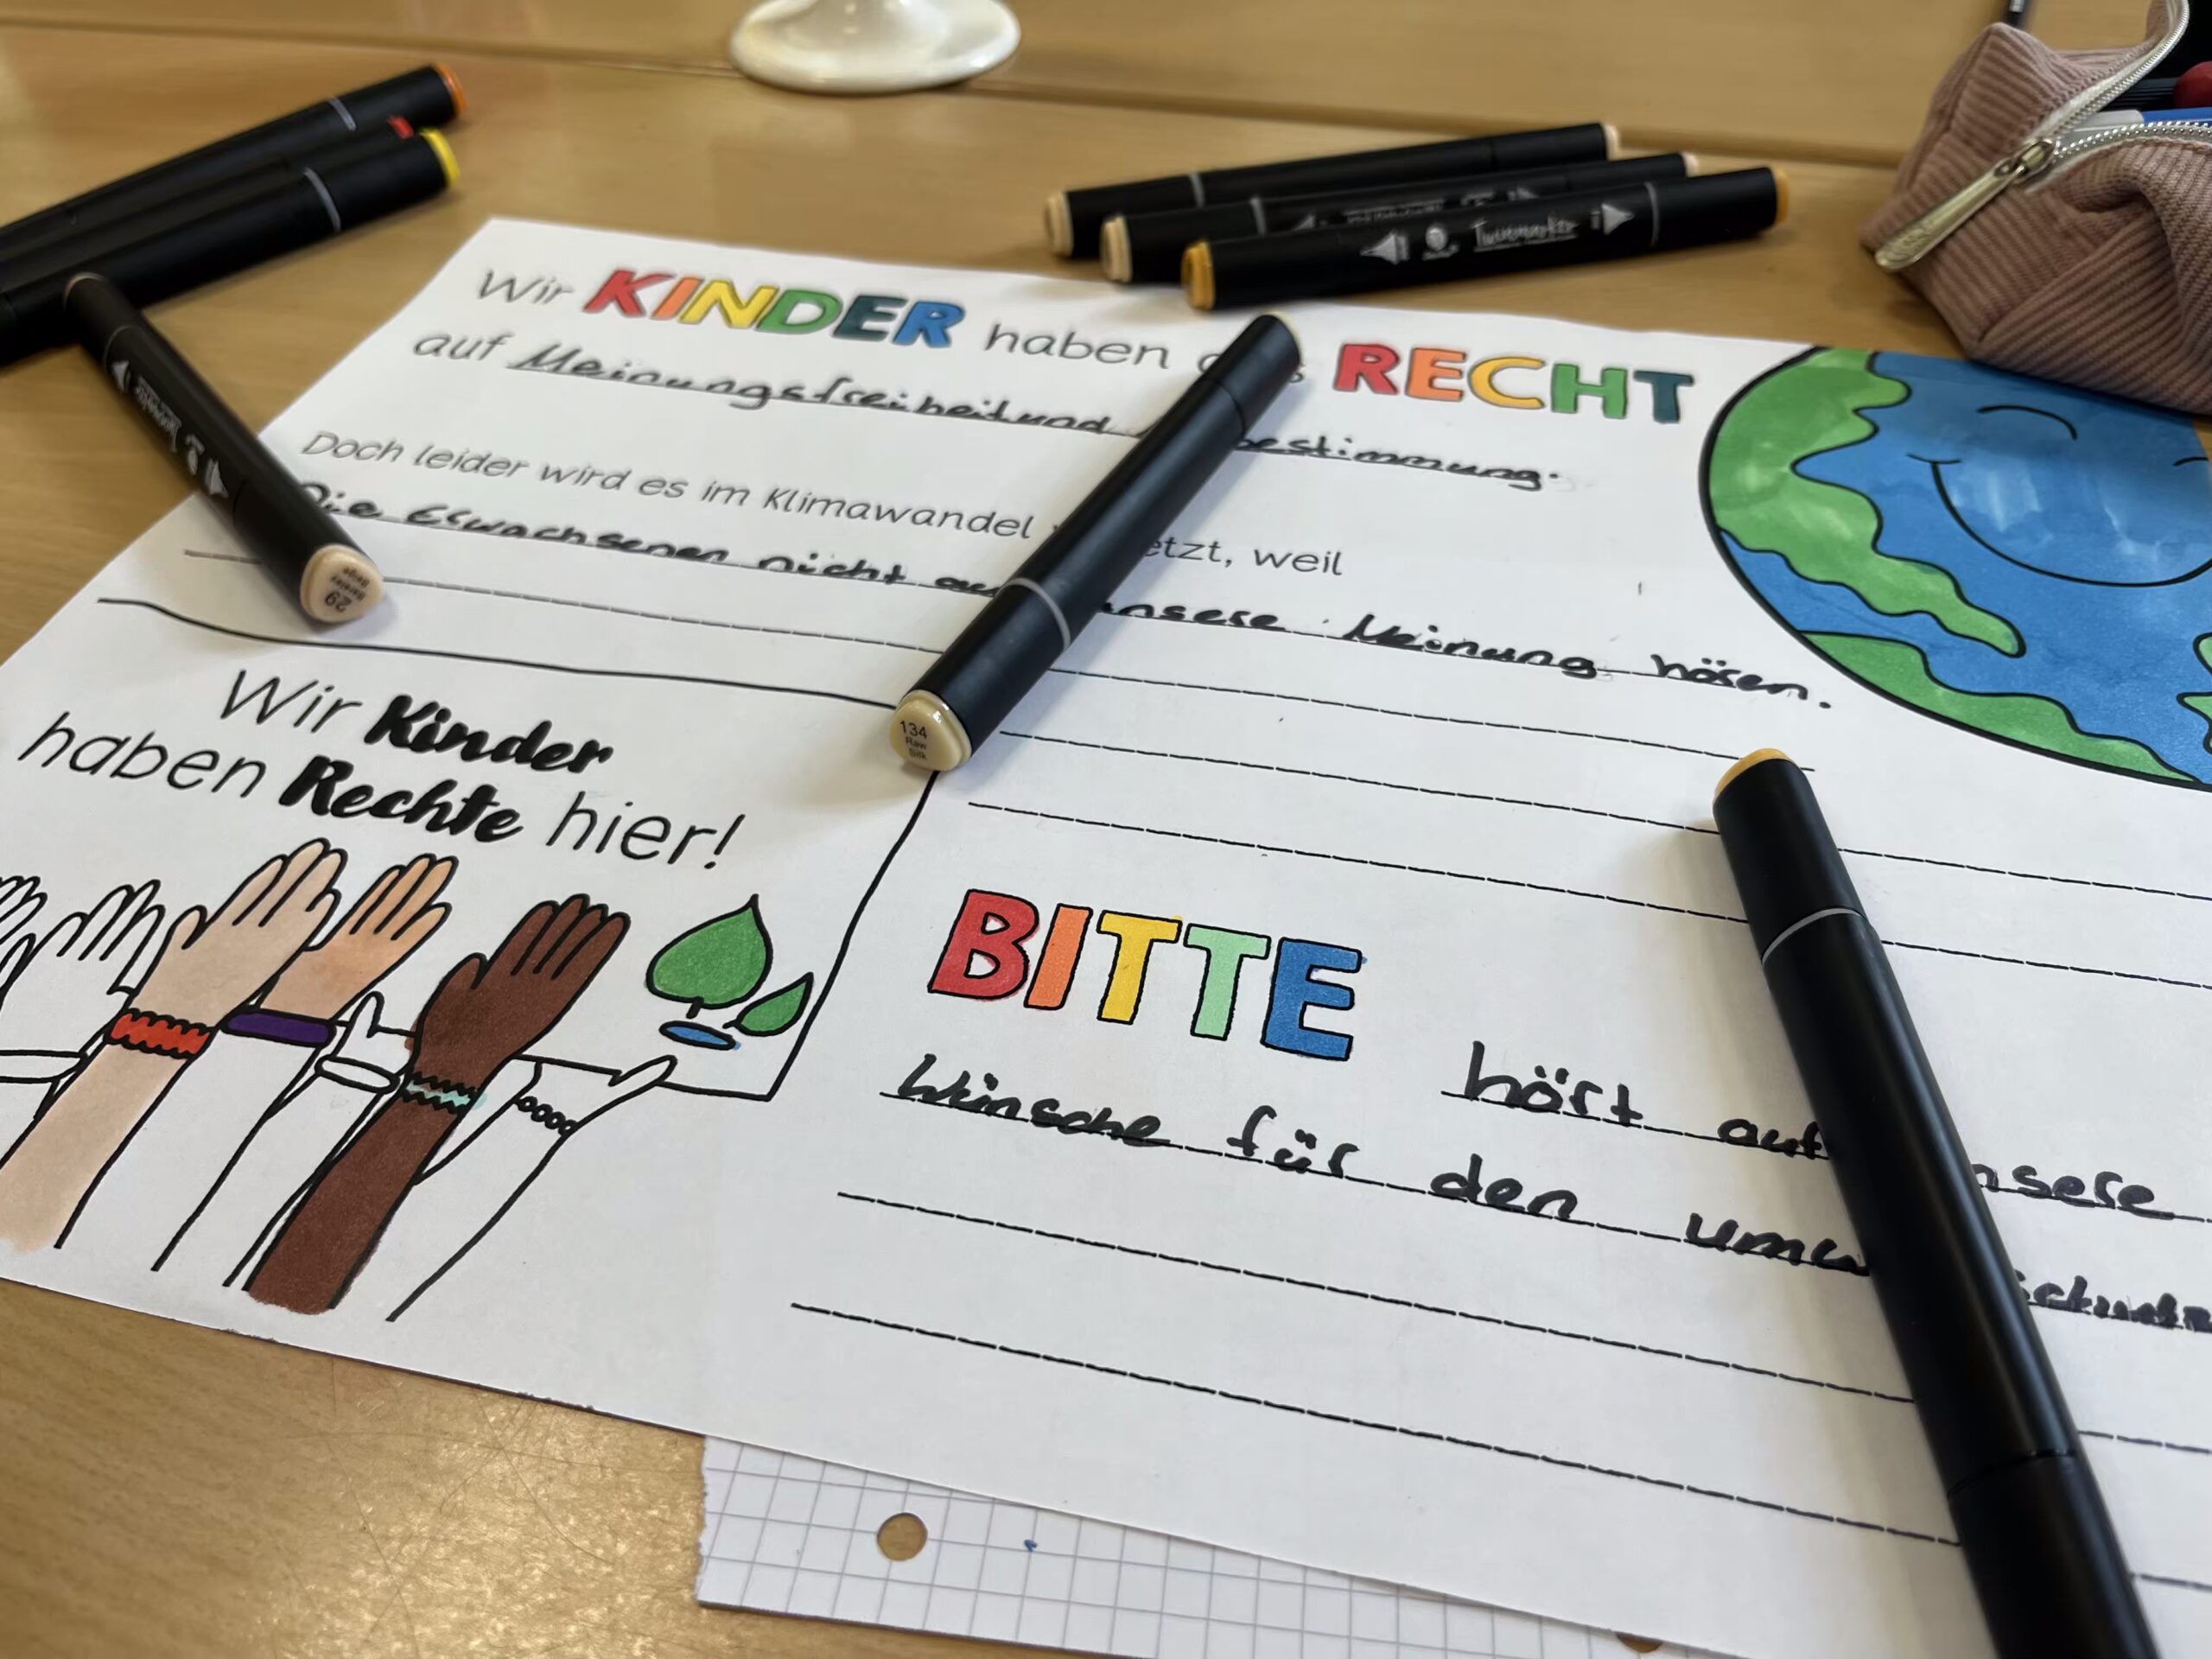 Wir KINDER haben RECHT
auf Meinungsfreiheit und bestimmung.
Doch leider wird es im Klimawandel etzt, weil
Die Erwachsenen nicht au unsere Meinung hören.
Wir Kinder
haben Rechte hier!
BITTE hört auf nsere
Wünsche für den umw schutz
134
Raw
Silk
29
Barely
Beige
Twinmarker